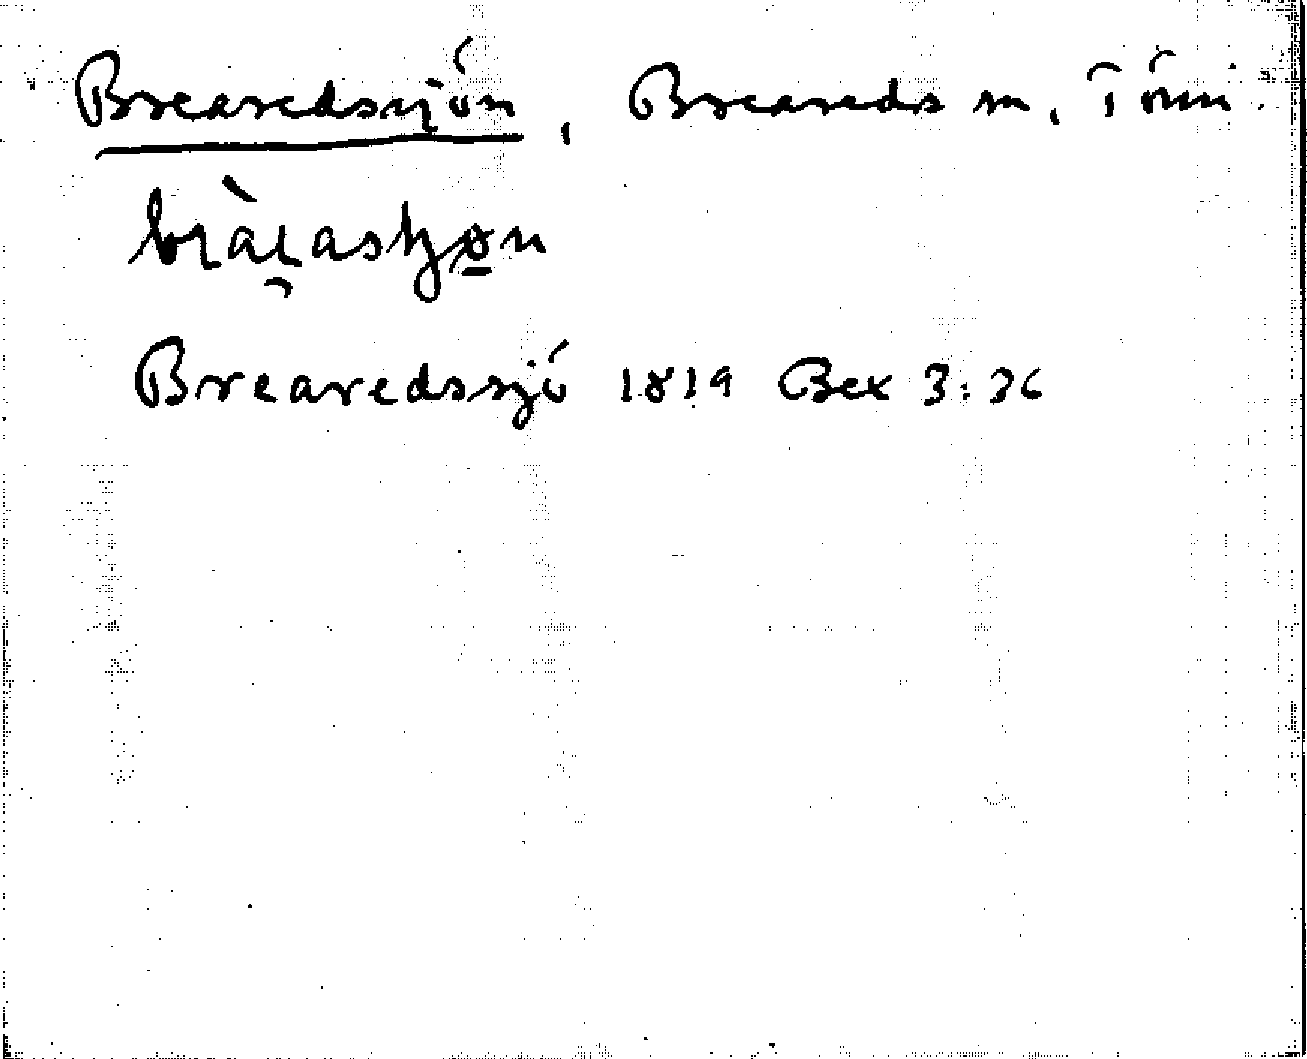 Brearedssjön, Breareds sn, Tönn.
Brearedssjö 1819 Bex 3:36